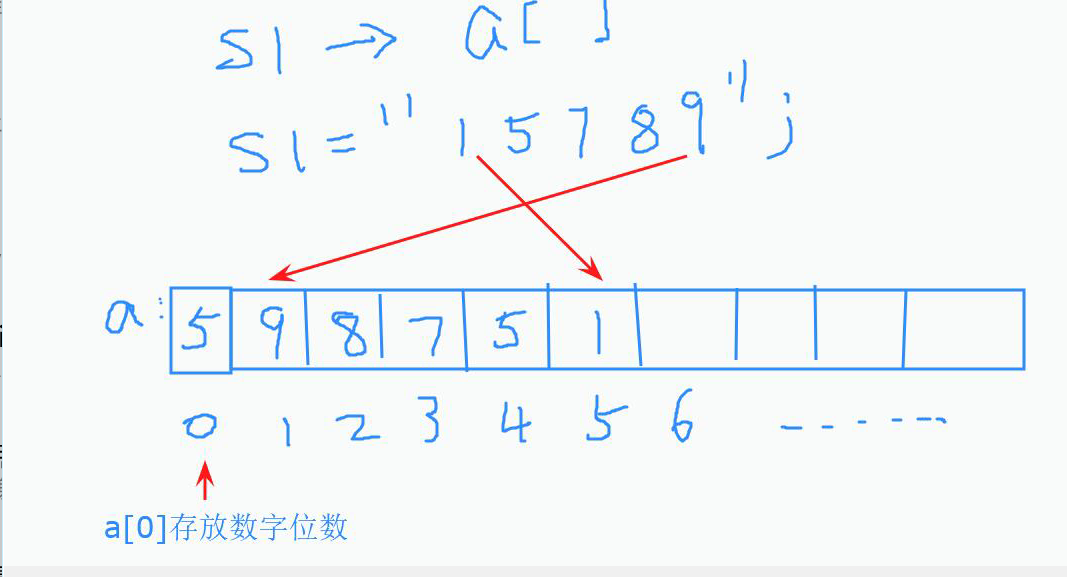 S1 → a[ ]
S1="15789";
a: 5 9 8 7 5 1
0 1 2 3 4 5 6 ------
a[0]存放数字位数